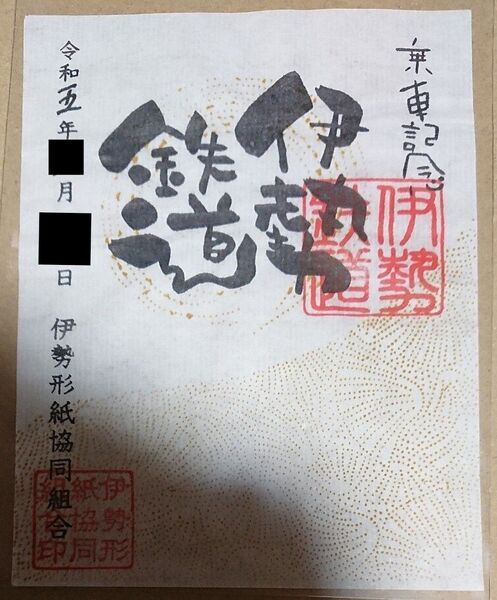 乗車記念
伊勢
鉄道
伊勢
鉄道
令和五年 月 日 伊勢形紙協同組合
伊勢形
紙協同
組合印